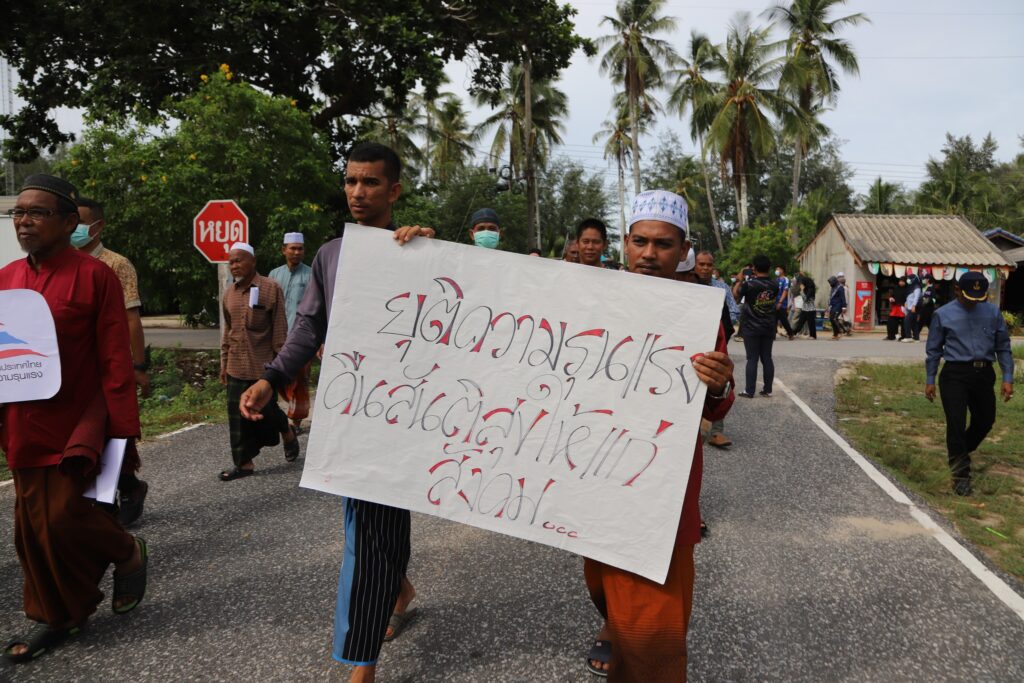 หยุด
ยุติความรุนแรง
คืนสันติสุขให้แก่
สังคม...
ประเทศไทย
ความรุนแรง